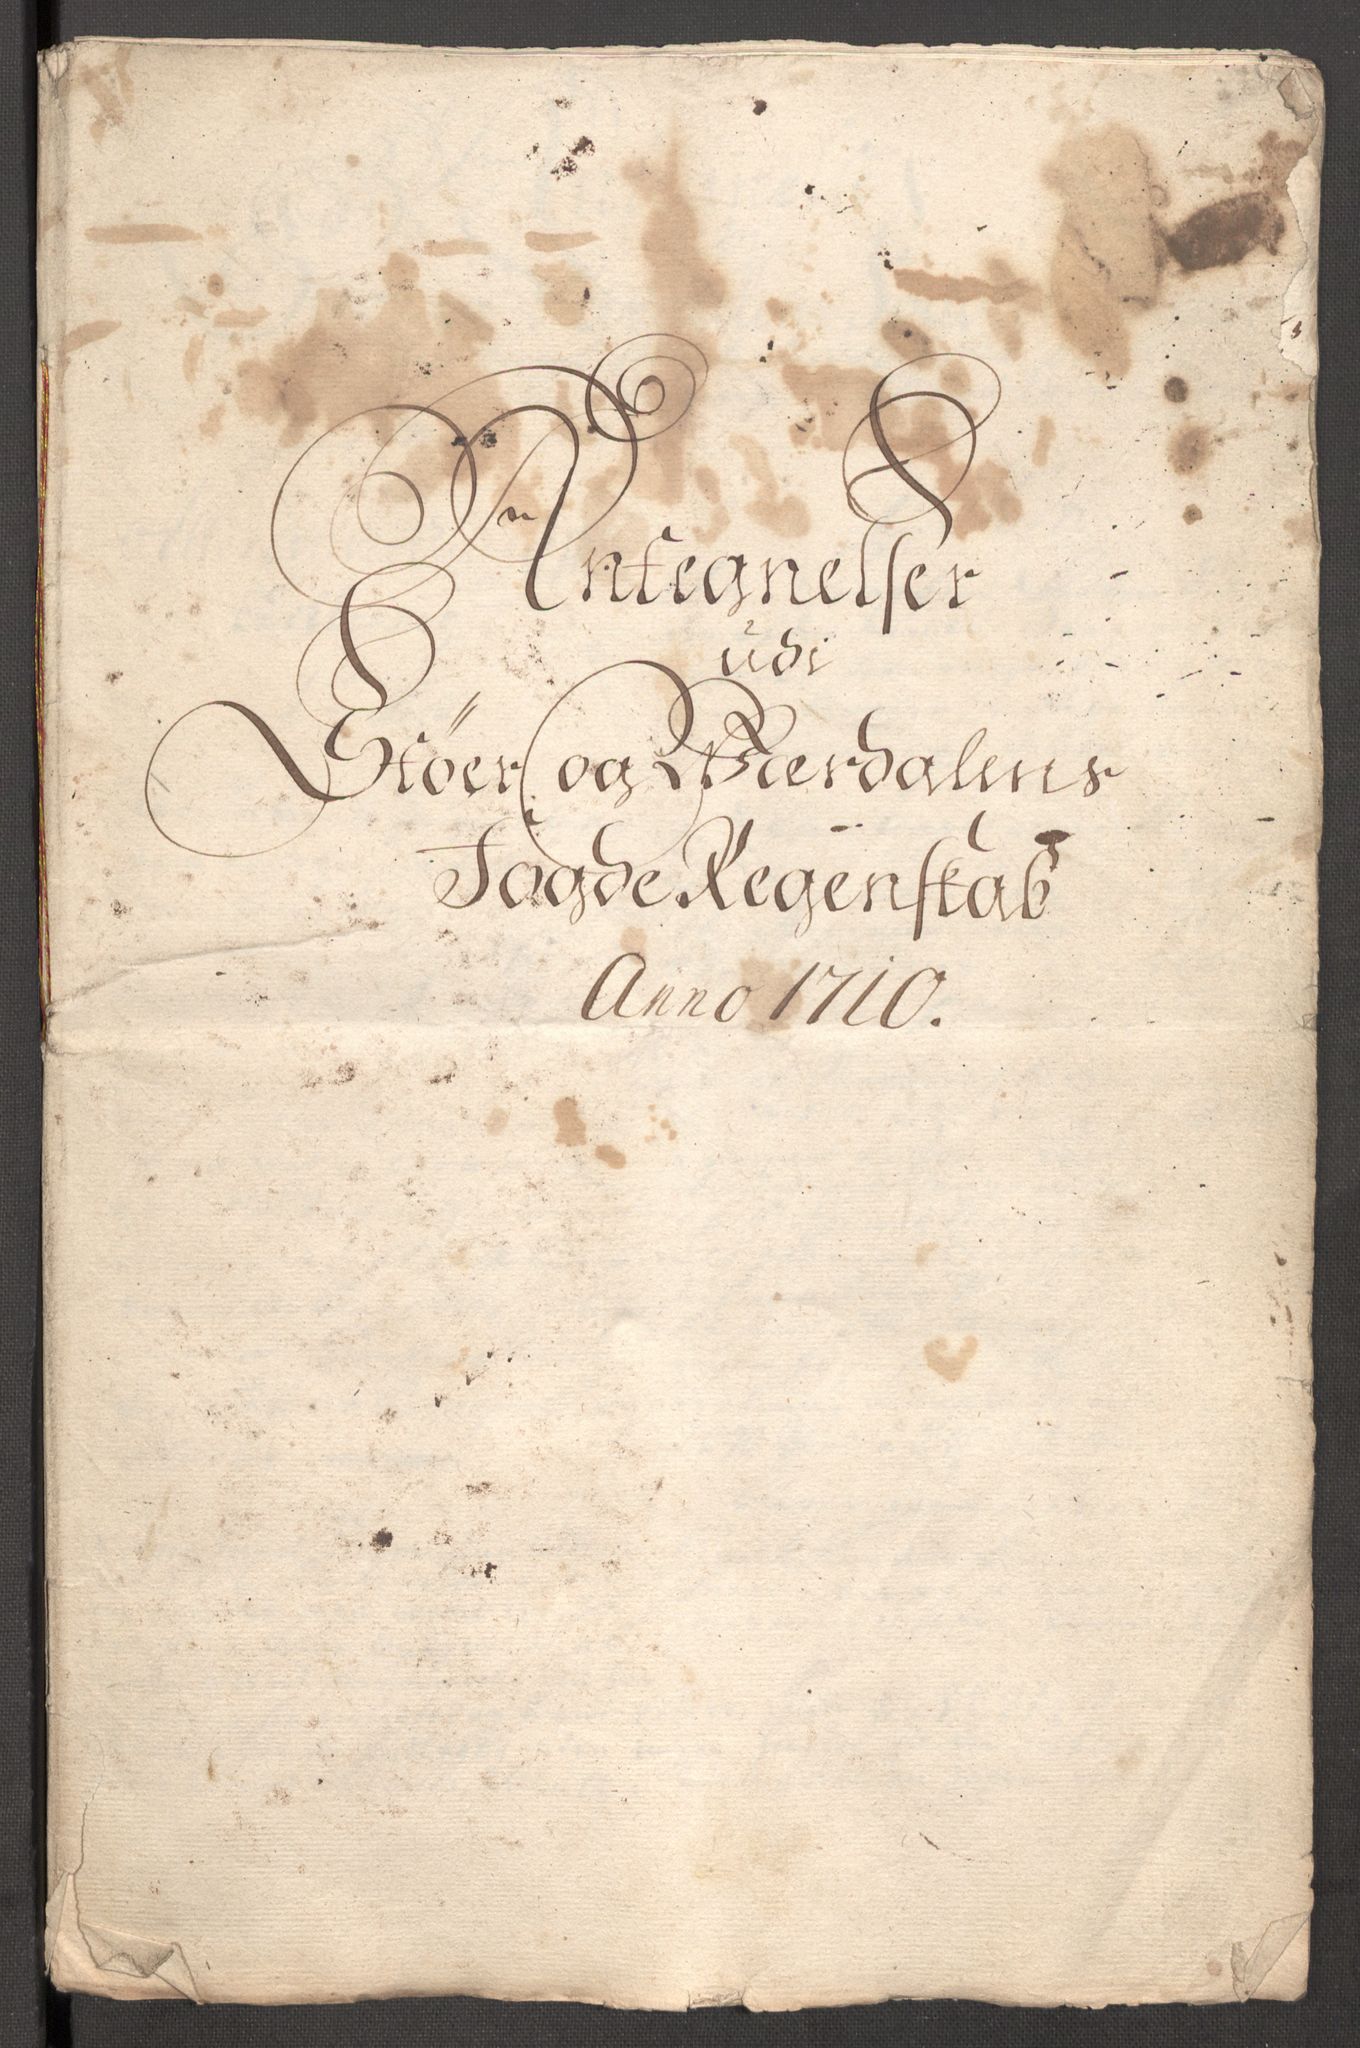 Antegnelser
udi
Støer og Værdalens
Fogde Regenskab
Anno 1710.